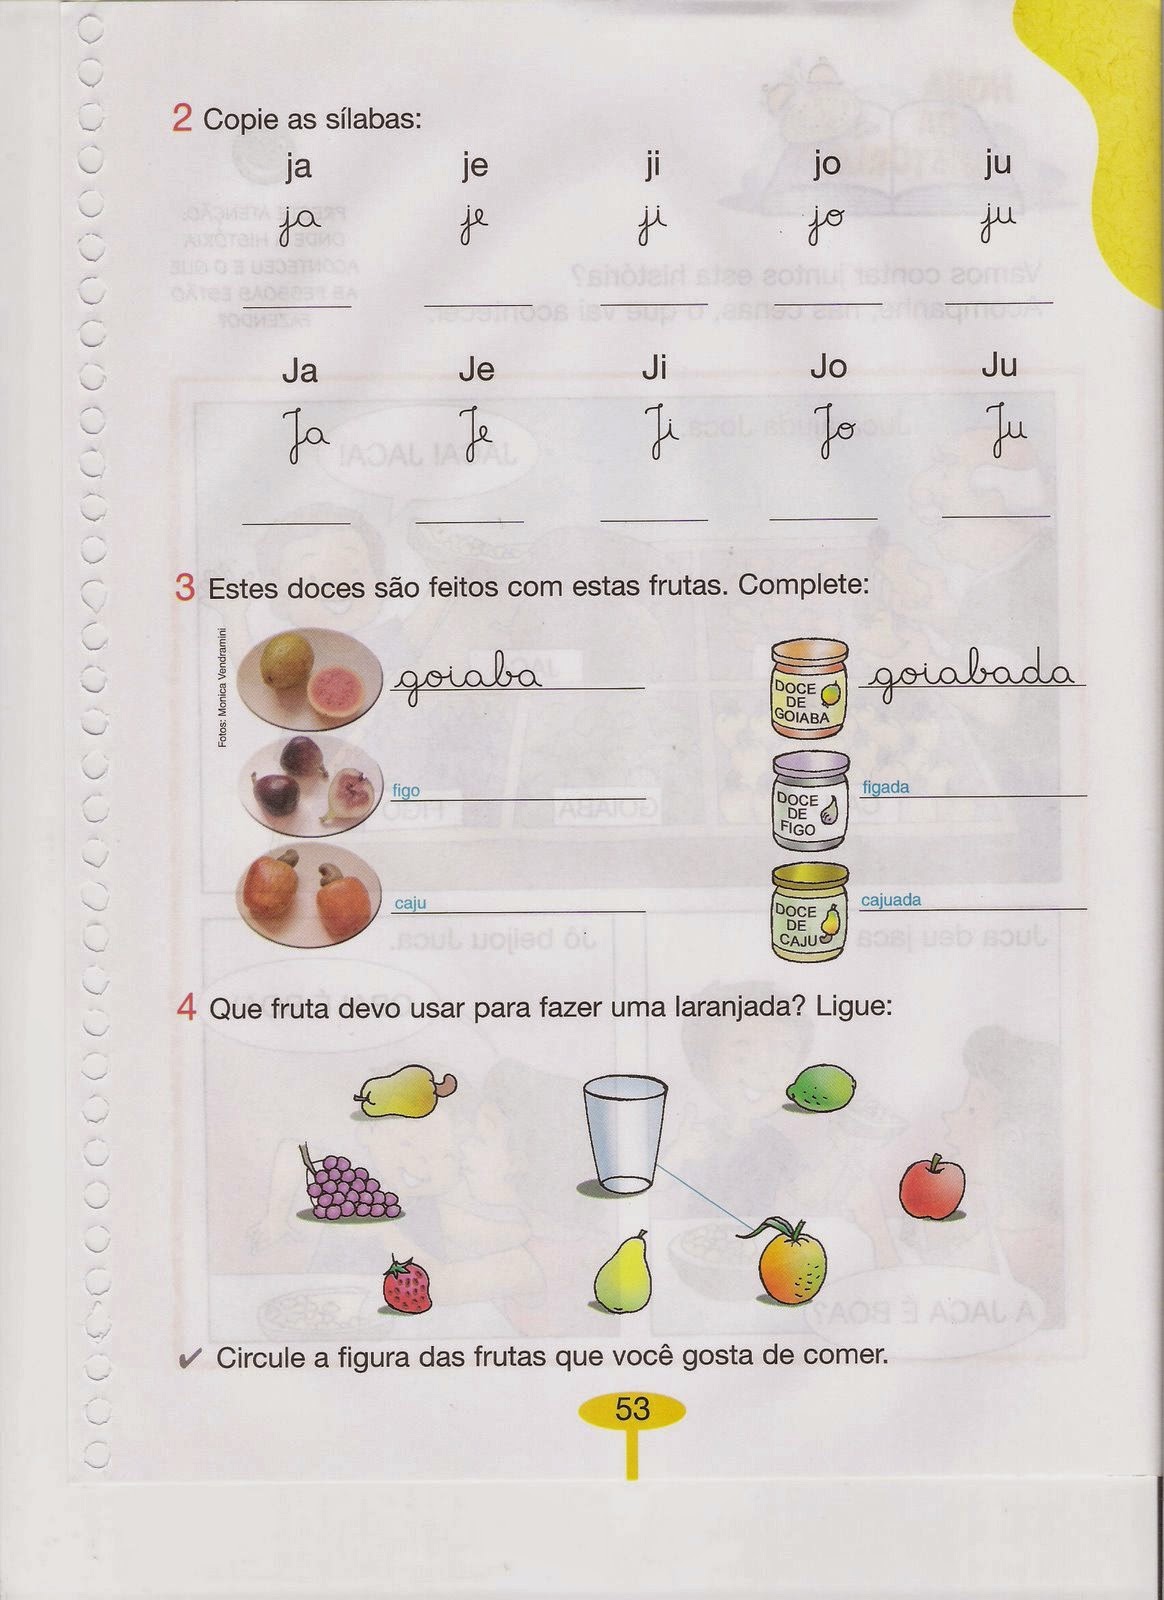 2 Copie as sílabas:
ja je ji jo ju
ja je ji jo ju
Ja Je Ji Jo Ju
Ja Je Ji Jo Ju
3 Estes doces são feitos com estas frutas. Complete:
Fotos: Monica Vendramini
goiaba
DOCE
DE
GOIABA
goiabada
figo
DOCE
DE
FIGO
figada
caju
DOCE
DE
CAJU
cajuada
4 Que fruta devo usar para fazer uma laranjada? Ligue:
✔ Circule a figura das frutas que você gosta de comer.
53